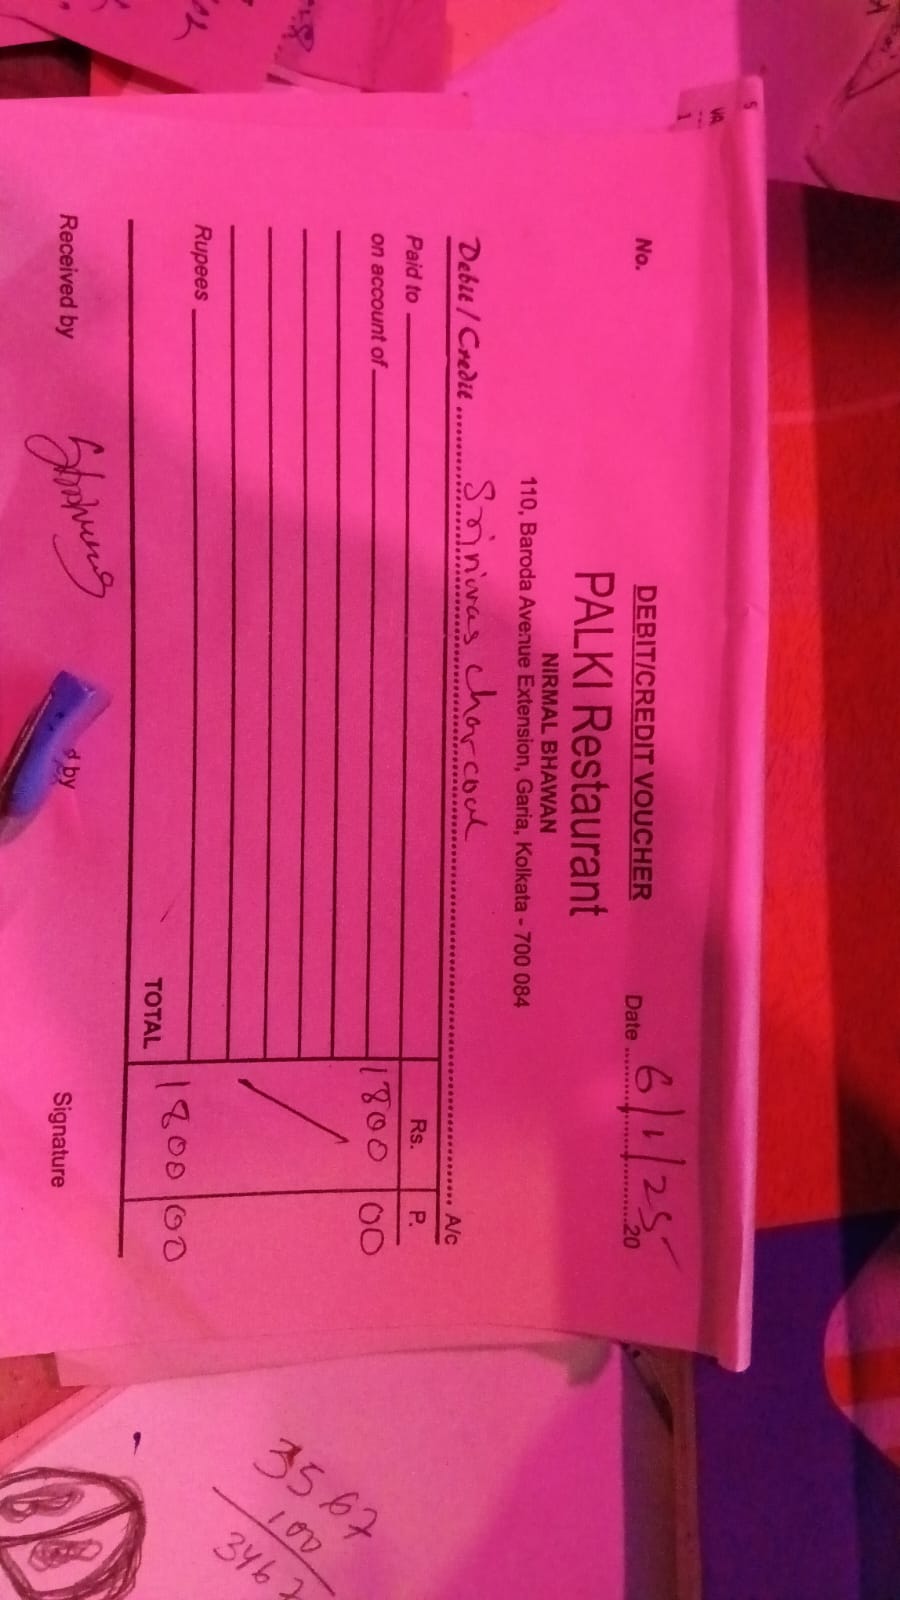 DEBIT/CREDIT VOUCHER
No.
Date ..........6/1/25..........20
PALKI Restaurant
NIRMAL BHAWAN
110, Baroda Avenue Extension, Garia, Kolkata - 700 084
Debit / Credit ..........Srinivas charcoal.......... A/c
Paid to
Rs. P.
on account of
1800 00
Rupees
TOTAL 1800 00
Received by
d by
Signature
3567
100
346